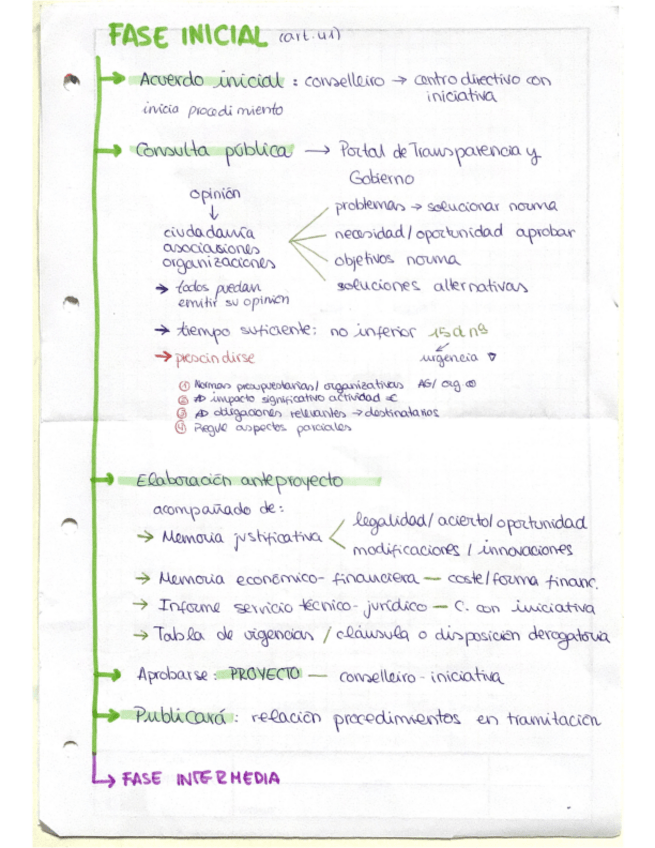 FASE INICIAL (art. 41)
→ Acuerdo inicial : conselleiro → centro directivo con
iniciativa
inicia procedimiento
→ Consulta pública → Portal de Transparencia y
Gobierno
opinión
↓
ciudadanía
asociasiones
organizaciones
problemas → solucionar norma
necesidad/oportunidad aprobar
objetivos norma
soluciones alternativas
→ todos puedan
emitir su opinión
→ tiempo suficiente: no inferior 15 d
→ prescindirse
urgencia
① Normas presupuestarias/ organizativas AG/ org
② impacto significativo actividad
③ obligaciones relevantes → destinatarios
④ Regule aspectos parciales
→ Elaboración anteproyecto
acompañado de:
→ Memoria justificativa
legalidad/acierto/oportunidad
modificaciones / innovaciones
→ Memoria económico-financiera — coste/forma financ.
→ Informe servicio técnico-jurídico — C. con iniciativa
→ Tabla de vigencias / cláusula o disposición derogatoria
→ Aprobarse : PROYECTO — conselleiro - iniciativa
→ Publicará : relación procedimientos en tramitación
→ FASE INTERMEDIA